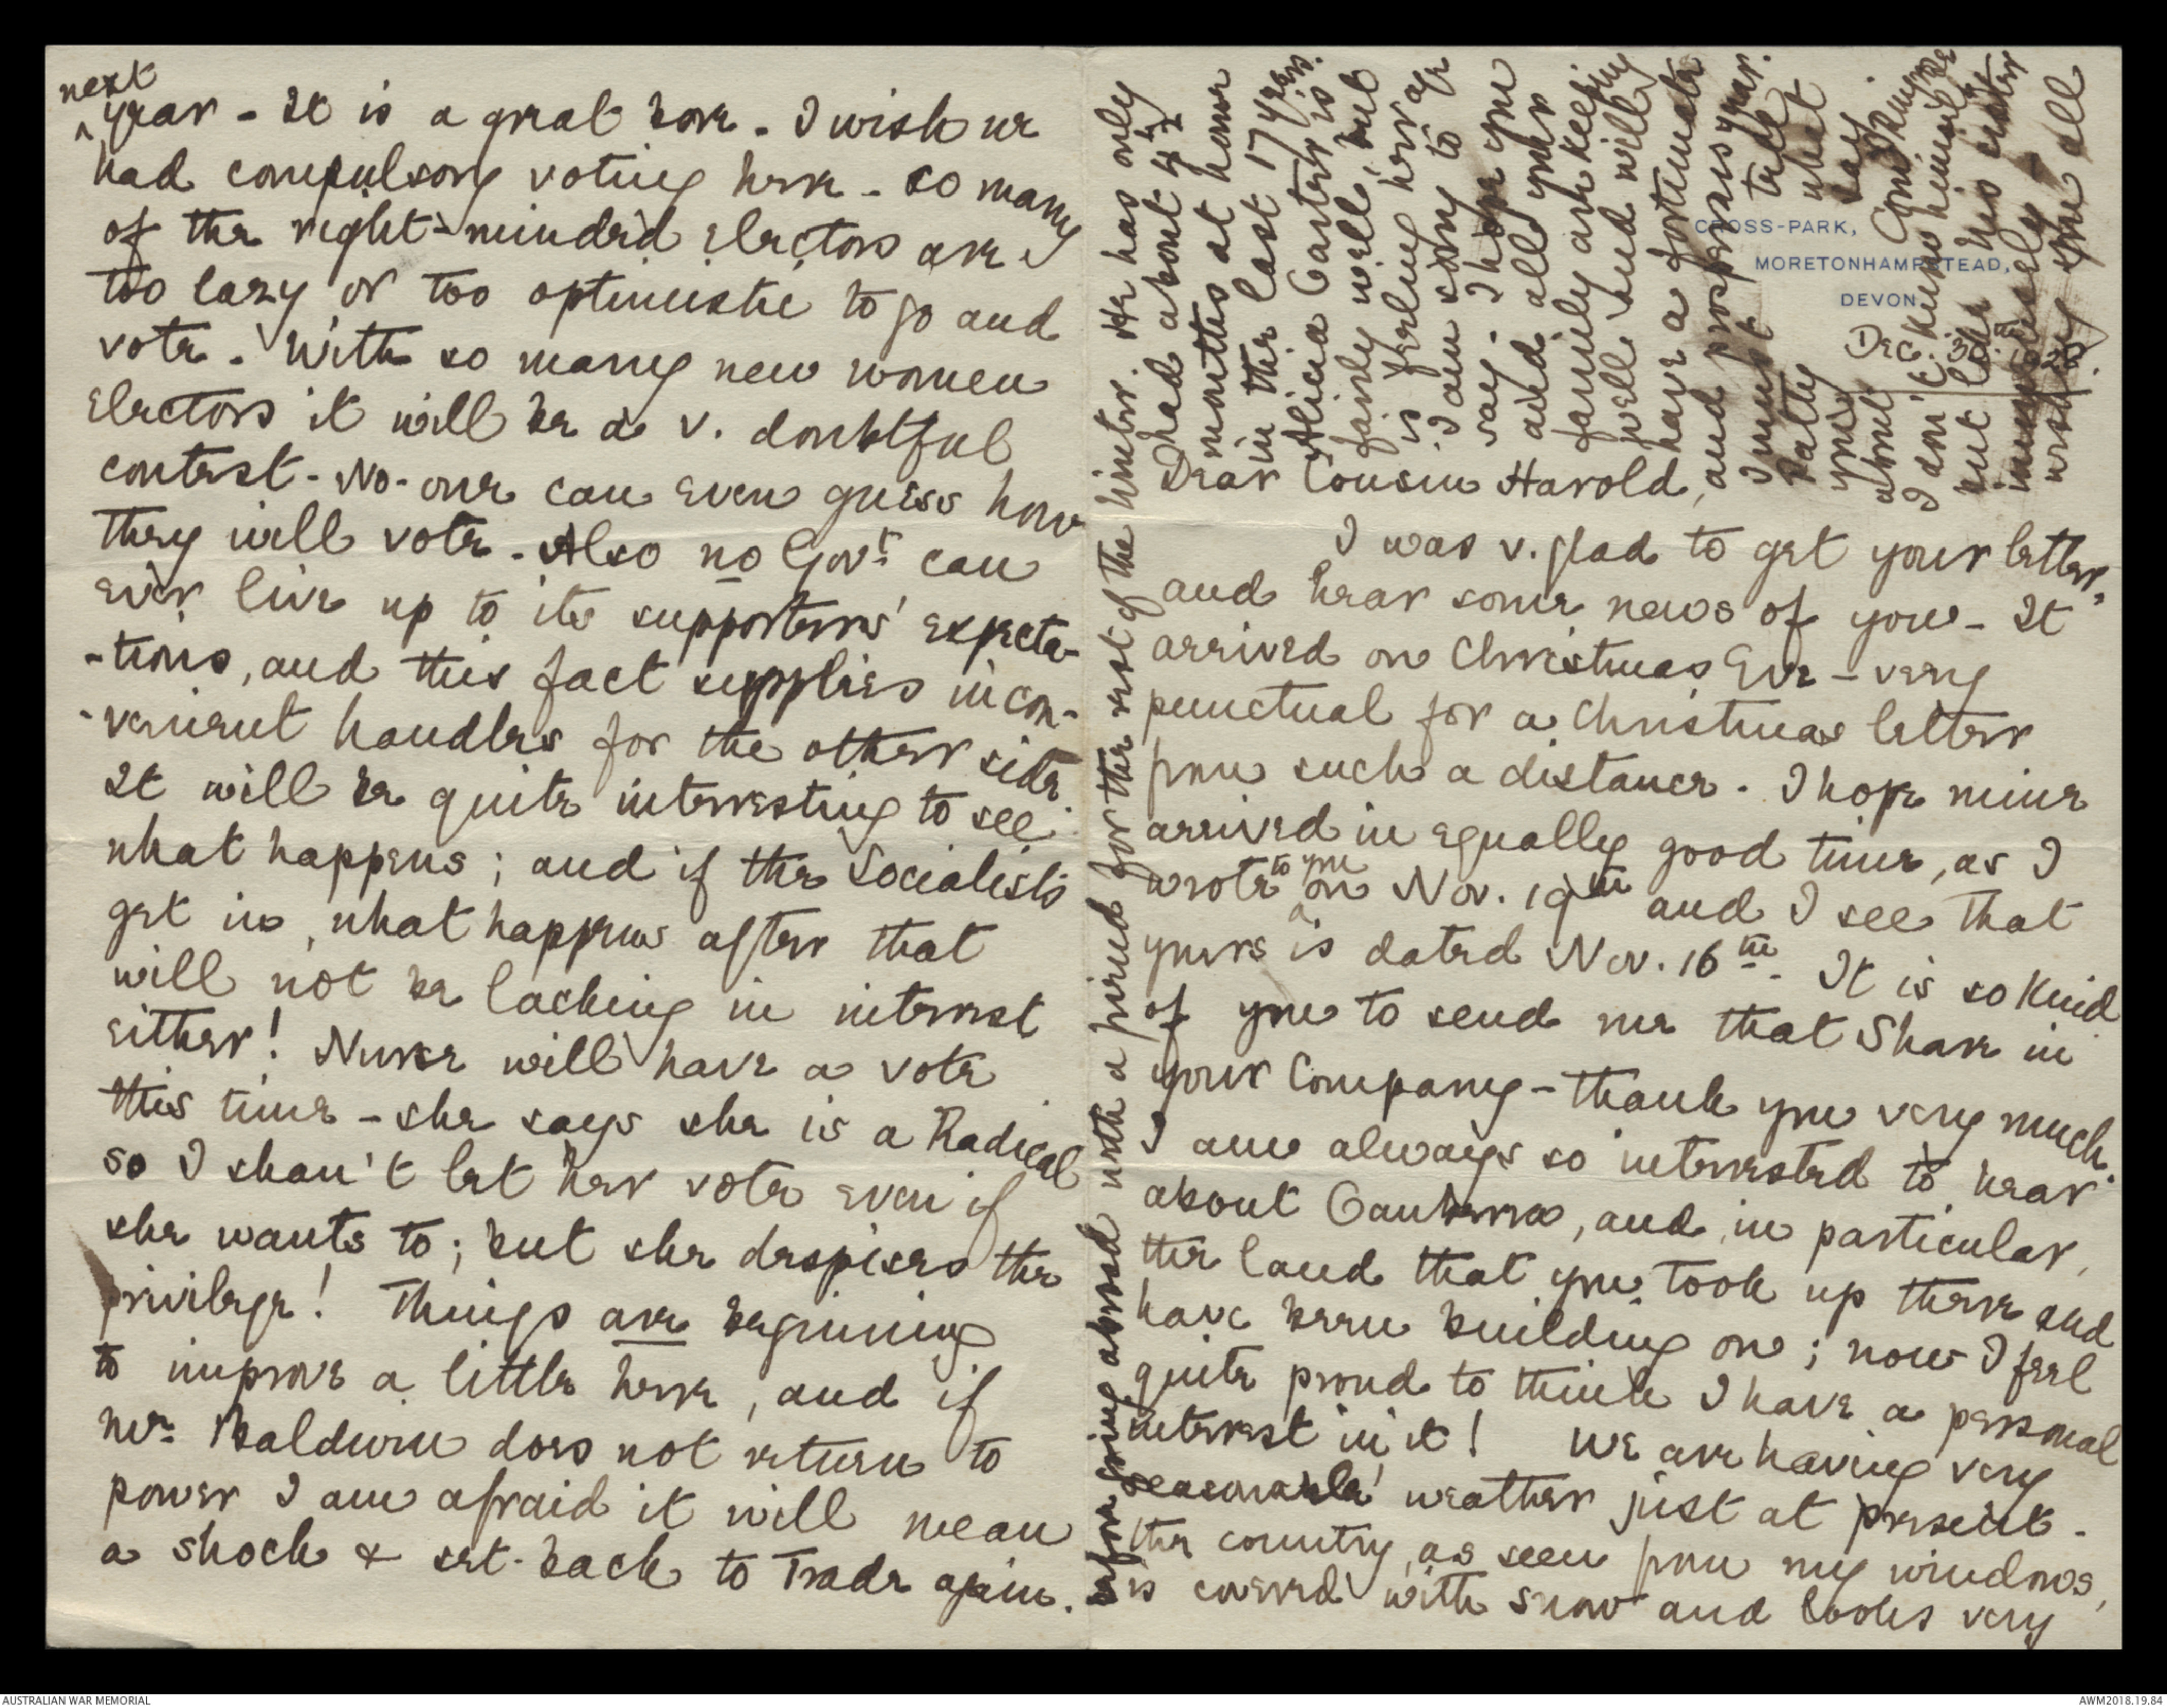 CROSS-PARK,
MORETONHAMPSTEAD,
DEVON.
Dec. 30th
Dear Cousin Harold,
I was v. glad to get your letter,
and hear some news of you - It
arrived on Christmas Eve - very
punctual for a Christmas letter
from such a distance. I hope mine
arrived in equally good time, as I
wrote to you on Nov. 19th and I see that
yours is dated Nov. 16th. It is so kind
of you to send me that Share in
your Company - thank you very much.
I am always so interested to hear
about Canberra, and, in particular,
the land that you took up there and
have been building on; now I feel
quite proud to think I have a personal
interest in it! We are having very
'seasonable' weather just at present -
the country, as seen from my windows,
is covered with snow and looks very
next
^ year - It is a great bore - I wish we
had compulsory voting here - so many
of the right-minded electors are
too lazy or too optimistic to go and
vote. With so many new women
electors it will be a v. doubtful
contest - No-one can even guess how
they will vote - Also no Govt. can
ever live up to its supporters' expecta-
-tions, and this fact supplies incon-
-venient handles for the other side.
It will be quite interesting to see
what happens; and if the Socialists
get in, what happens after that
will not be lacking in interest
either! Nurse will have a vote
this time - she says she is a Radical
so I shan't let her vote even if
she wants to; but she despises the
privilege! Things are beginning
to improve a little here, and if
Mr. Baldwin does not return to
power I am afraid it will mean
a shock & set-back to Trade again.
before going abroad with a period for the rest of the winter. He has only
had about 4½
months at home
in the last 17 years.
Alicia Carter is
fairly well, but
is feeling her age
I am sorry to
say. I hope you
and all your
family are keeping
well and will
have a fortunate
and prosperous year.
I must
tell
you what
about say
I don't know himself
but his sister
immensely -
wishing you all
AUSTRALIAN WAR MEMORIAL
AWM2018.19.84